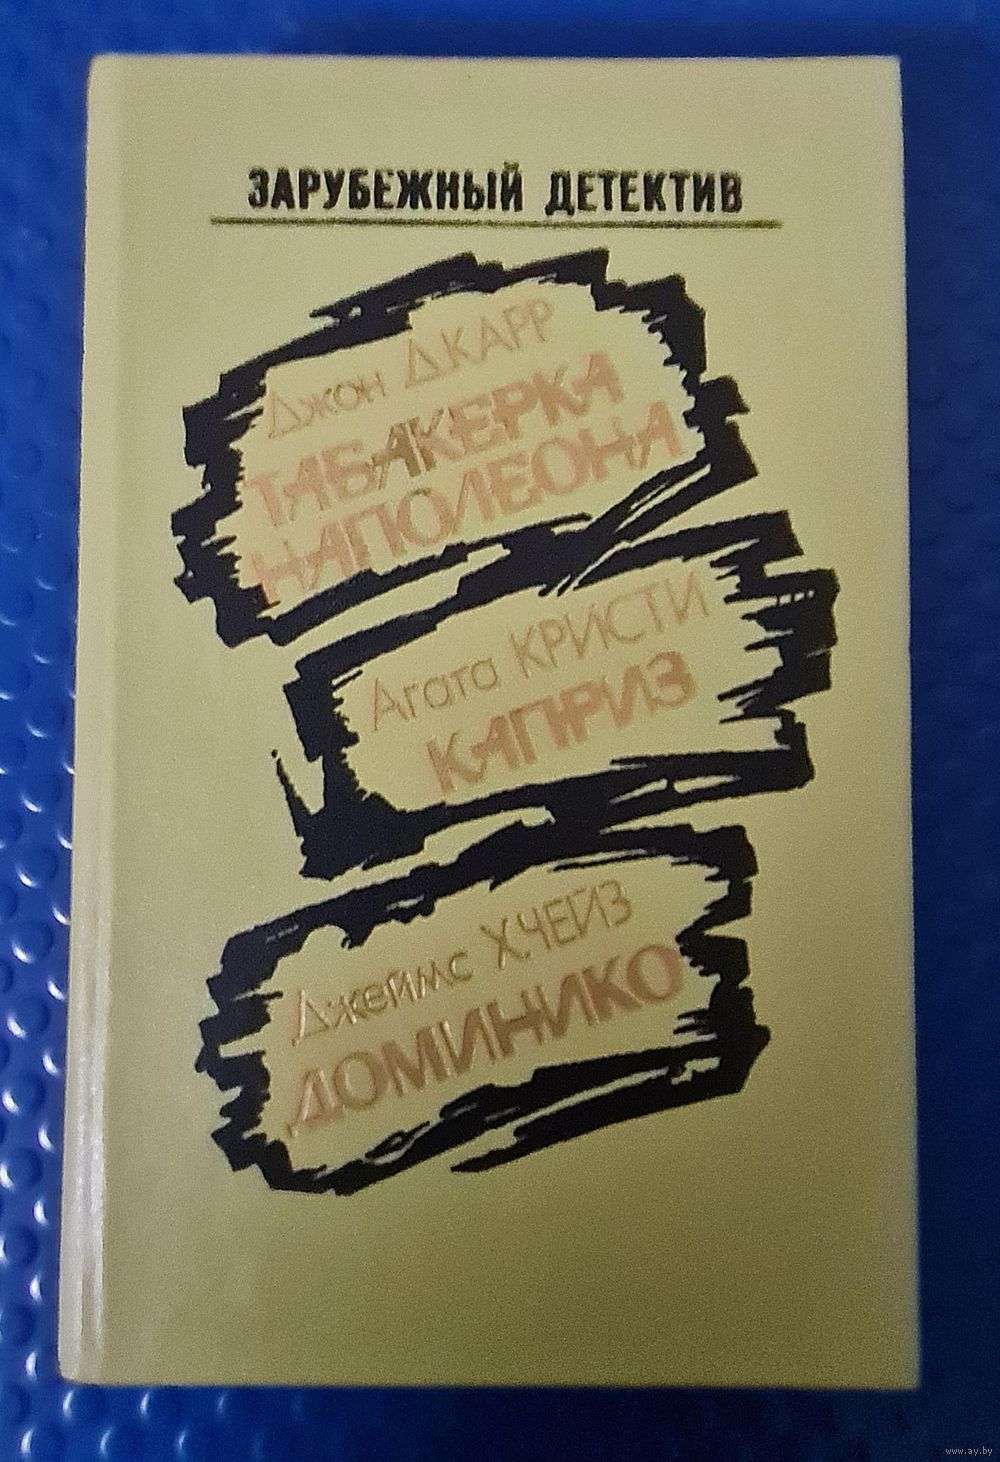 ЗАРУБЕЖНЫЙ ДЕТЕКТИВ
Джон Д.КАРР
ТАБАКЕРКА
НАПОЛЕОНА
Агата КРИСТИ
КАПРИЗ
Джеймс Х.ЧЕЙЗ
ДОМИНИКО
www.ay.by